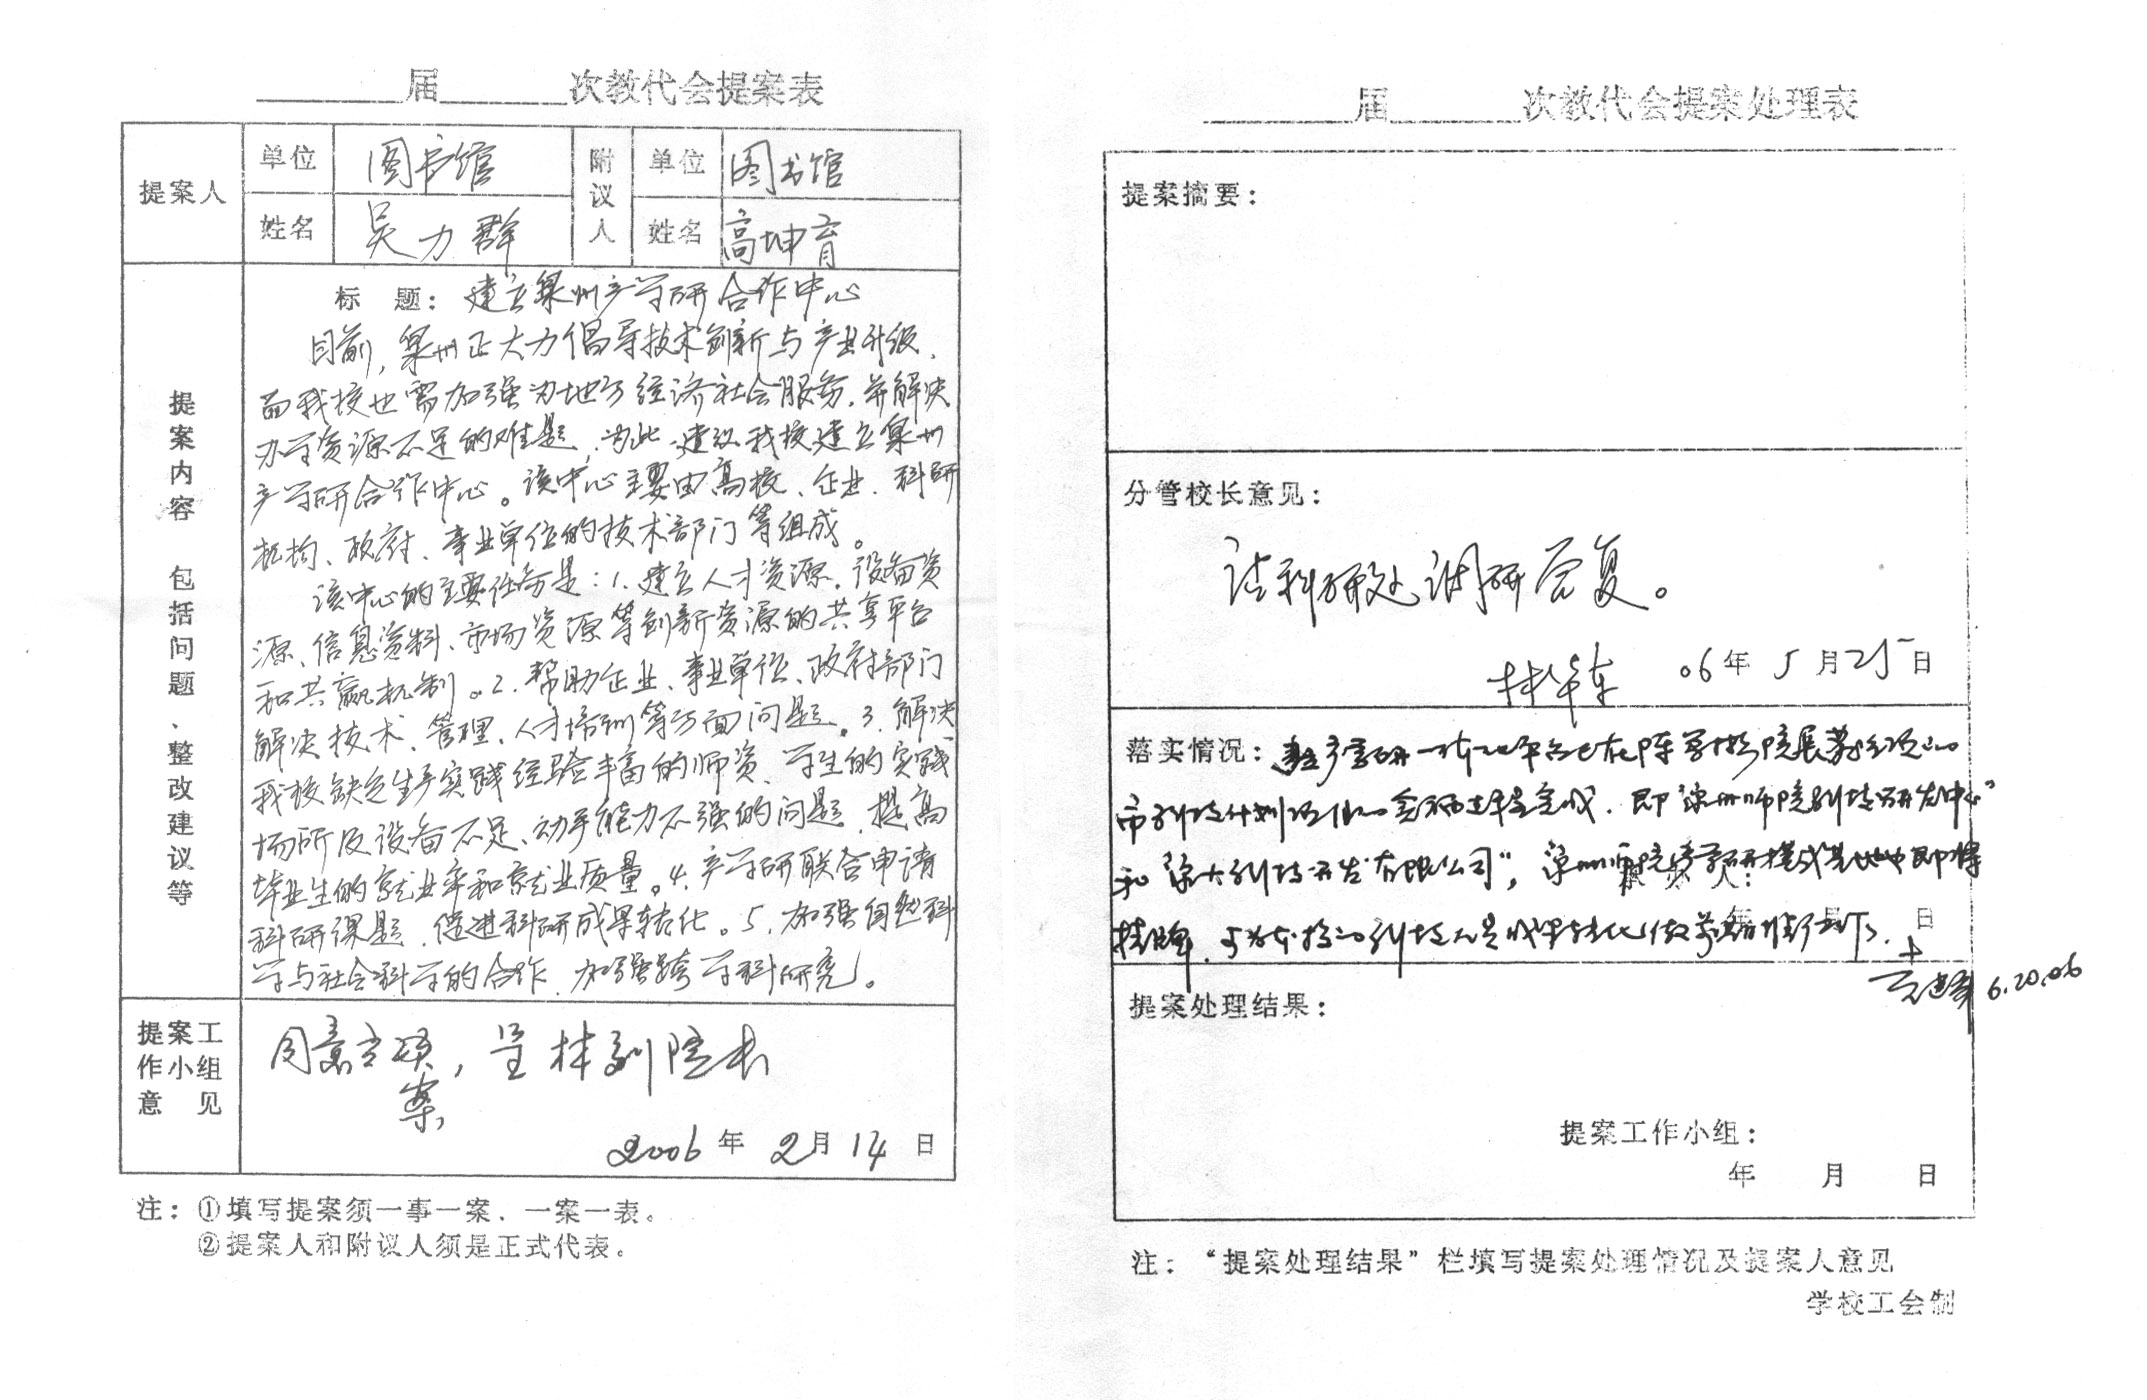 届 次教代会提案表
提案人
单位 图书馆
姓名 吴力群
附议人
单位 图书馆
姓名 高坤育
提案内容 包括问题、整改建议等
标 题: 建立泉州产学研合作中心
目前,泉州正大力倡导技术创新与产业升级,
而我校也需加强为地方经济社会服务,并解决
办学资源不足的难题,为此,建议我校建立泉州
产学研合作中心。该中心主要由高校、企业、科研
机构、政府、事业单位的技术部门等组成。
该中心的主要任务是:1.建立人才资源、设备资
源、信息资料、市场资源等创新资源的共享平台
和共赢机制。2.帮助企业、事业单位、政府部门
解决技术、管理、人才培训等方面问题。3.解决
我校缺乏生产实践经验丰富的师资、学生的实践
场所及设备不足、动手能力不强的问题,提高
毕业生的就业率和就业质量。4.产学研联合申请
科研课题,促进科研成果转化。5.加强自然科
学与社会科学的合作,加强跨学科研究。
提案工作小组意见
同意立项,呈林副院长
案,
2006 年 2 月 14 日
注:①填写提案须一事一案、一案一表。
②提案人和附议人须是正式代表。
届 次教代会提案处理表
提案摘要:
分管校长意见:
请科研处调研答复。
06 年 5 月 25 日
落实情况: 产学研一体化平台已在陈
市科技计划 完成,即"泉州师院科技研发中心"
和"泉大科技开发有限公司",泉州师院产学研 基地也即将
挂牌,
年 月 日
6.20.06
提案处理结果:
提案工作小组:
年 月 日
注:"提案处理结果"栏填写提案处理情况及提案人意见
学校工会制